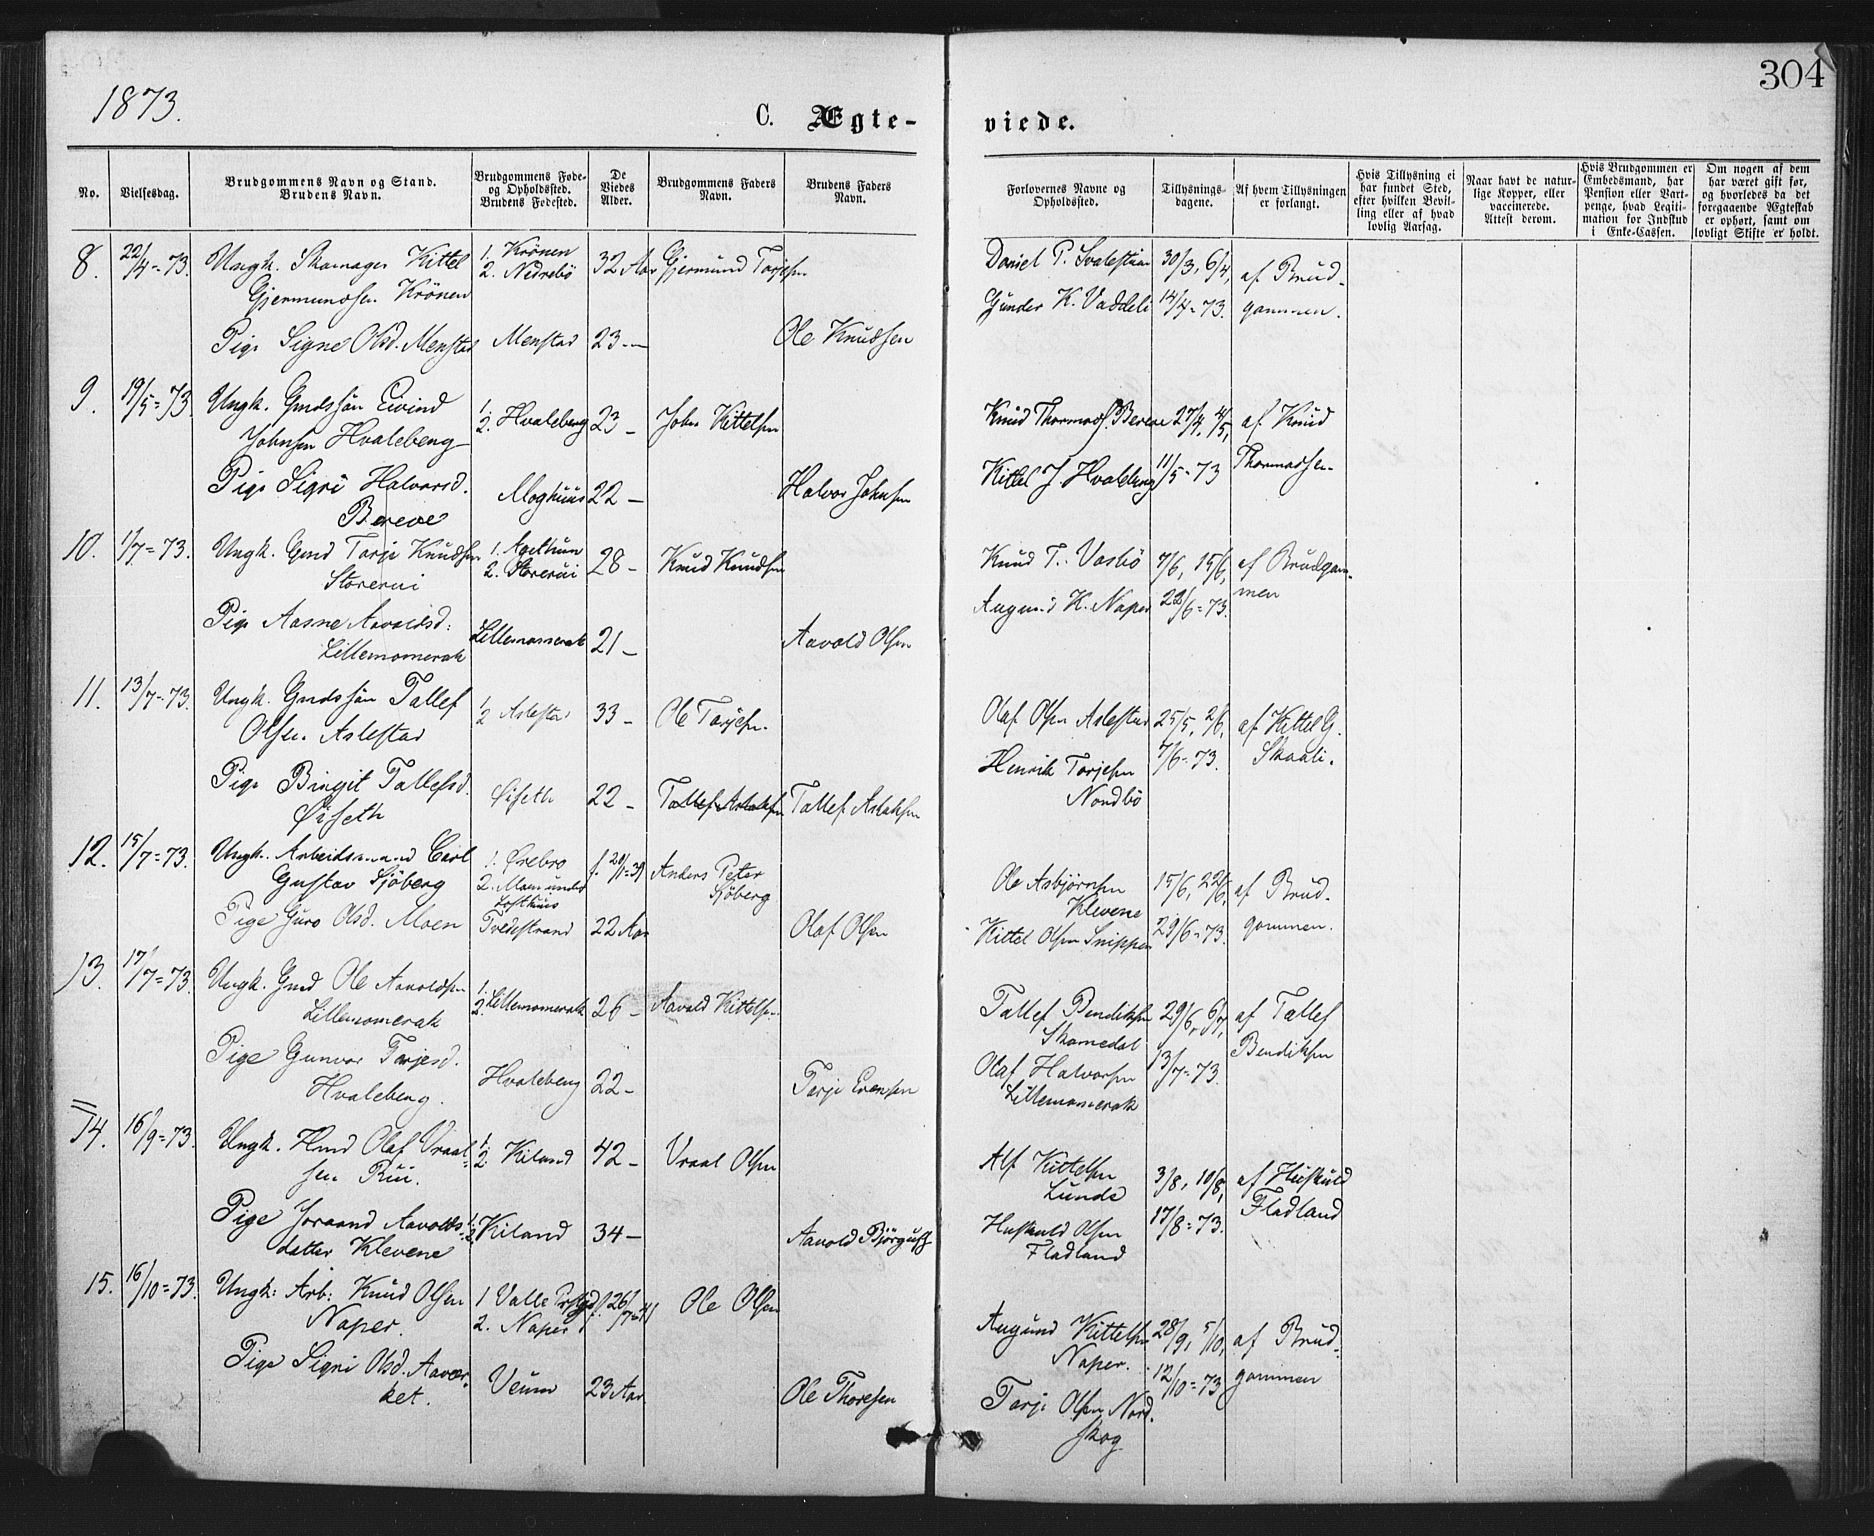 304
1873.
C. Ægte- viede.
No.
Vielsesdag.
Brudgommens Navn og Stand.
Brudens Navn.
Brudgommens Føde-
og Opholdssted.
Brudens Fødested.
De
Viedes
Alder.
Brudgommens Faders
Navn.
Brudens Faders
Navn.
Forlovernes Navne og
Opholdssted.
Tillysnings-
dagene.
Af hvem Tillysningen
er forlangt.
Hvis Tillysning ei
har fundet Sted,
efter hvilken Bevil-
ling eller af hvad
lovlig Aarsag.
Naar havt de natur-
lige Kopper, eller
vaccinerede.
Attest derom.
Hvis Brudgommen er
Embedsmand, har
Pension eller Vart-
penge, hvad Legiti-
mation for Indskud
i Enke-Cassen.
Om nogen af dem
har været gift før,
og hvorledes da det
foregaaende Ægteskab
er ophørt, samt om
lovligt Skifte er holdt.
8. 22/4=73. Ungk. Skomager Kittel 1. Krönen 32 Aar Gjermund Torjesen Daniel P. Svalestuen 30/3, 6/4, af Brud-
Gjermundsen Krönen 2. Nedrebö Gunder K. Vaddeli 14/4=73. gommen.
Pige Signe Olsd. Menstad Menstad 23 — Ole Knudsen
9. 19/5=73. Ungk. Gmdssön Eivind 1. 2. Hvaleberg 23 — John Kittelsen Knud Thormodsf. Bereve 27/4, 4/5, af Knud
Johnsen Hvaleberg Kittel J. Hvaleberg 11/5=73 Thormodsen
Pige Sigri Halvorsd. Moghuus 22 — Halvor Johnsen
Bereve
10. 1/7=73. Ungk. Gmd Torje Knudsen 28 — Knud Knudsen Knud T. Vasbö 7/6, 15/6, af Brudgom-
Storerui 2. Storerui Augund K. Naper 22/6=73. men
Pige Aasne Aavoldsd: Lillemomerak 21 — Aavold Olsen
Lillemomerak
11. 13/7=73. Ungk. Gmdssön Tallef 1. 2 Aslestad 33 — Ole Torjesen. Olaf Olsen Aslestad 25/5, 2/6, af Kittel G.
Olsen Aslestad Henrik Torjesen 7/6=73. Skaali.
Pige Birgit Tallefsd. Öiseth 22 — Tallef Aslaksen Tallef Aslaksen Nordbö
Öiseth
12. 15/7=73. Ungk. Arbeidsmand Carl 1. Örebro Anders Peter Ole Asbjörnsen 15/6, 22/6, af Brud-
Gustav Sjöberg 2. Moen under Sjöberg Klevene
Losthuus
Pige Guro Olsd. Moen Tvedestrand 22 Aar Olaf Olsen Kittel Olsen Snippen 29/6=73. gommen.
13. 17/7=73. Ungk. Gmd Ole Aavoldsen 1. 2. Lillemomerak 26 — Aavold Kittelsen. Tallef Bendiksen 29/6, 6/7, af Tallef
Lillemomerak Skomedal Bendiksen
Pige Gunvor Torjesd. Hvaleberg 22 — Torje Evensen Olaf Halvorsen 13/7=73.
Hvaleberg. Lillemomerak
14. 16/9=73. Ungk. Hmd Olaf Vraal- 1. 2. Kiland 42 — Vraal Olsen Alf Kittelsen 3/8, 10/8, af Huskuld
sen Rui. Lunde Fladland
Pige Joraand Aavolds- 1. 2. Kiland 34 — Aavold Björgufs. Huskuld Olsen 17/8=73.
datter Klevene Fladland
15. 16/10=73. Ungk: Arb: Knud Olsen 1 Valle Prstgd f. 26/7=41 Ole Olsen Augund Kittelsen 28/9, 5/10, af Brud-
Naper. 2. Naper Naper. 12/10=73 gommen
Pige Signi Olsd. Aaver- Veum 23 Aar Ole Thoresen Torje Olsen Nord-
ket. skog